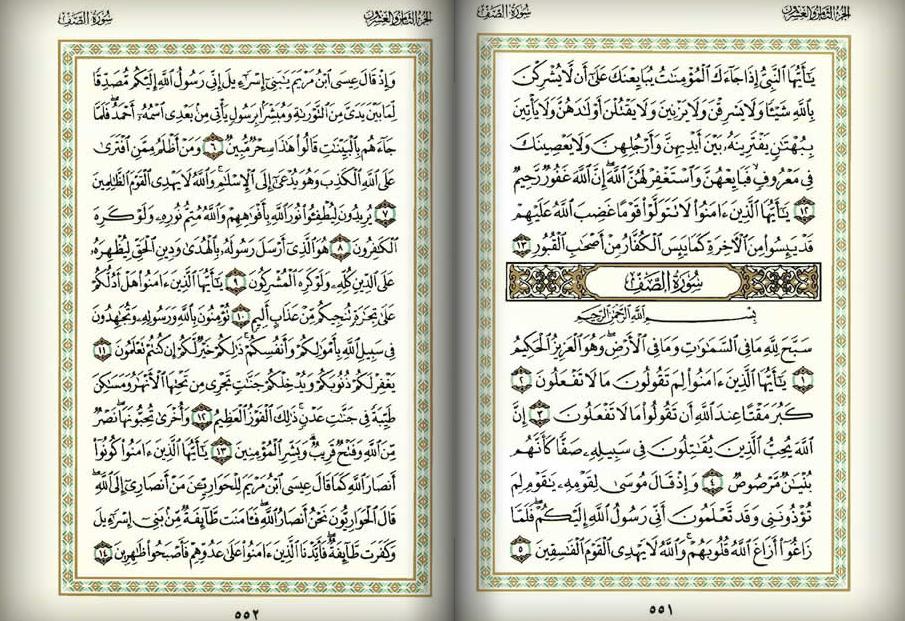 سُورَةُ الصَّفِّ
الجزء الثامن والعشرون
يَـٰٓأَيُّهَا ٱلنَّبِىُّ إِذَا جَآءَكَ ٱلْمُؤْمِنَـٰتُ يُبَايِعْنَكَ عَلَىٰٓ أَن لَّا يُشْرِكْنَ
بِٱللَّهِ شَيْـًٔا وَلَا يَسْرِقْنَ وَلَا يَزْنِينَ وَلَا يَقْتُلْنَ أَوْلَـٰدَهُنَّ وَلَا يَأْتِينَ
بِبُهْتَـٰنٍ يَفْتَرِينَهُۥ بَيْنَ أَيْدِيهِنَّ وَأَرْجُلِهِنَّ وَلَا يَعْصِينَكَ
فِى مَعْرُوفٍ فَبَايِعْهُنَّ وَٱسْتَغْفِرْ لَهُنَّ ٱللَّهَ إِنَّ ٱللَّهَ غَفُورٌ رَّحِيمٌ
١٢ يَـٰٓأَيُّهَا ٱلَّذِينَ ءَامَنُوا۟ لَا تَتَوَلَّوْا۟ قَوْمًا غَضِبَ ٱللَّهُ عَلَيْهِمْ
قَدْ يَئِسُوا۟ مِنَ ٱلْـَٔاخِرَةِ كَمَا يَئِسَ ٱلْكُفَّارُ مِنْ أَصْحَـٰبِ ٱلْقُبُورِ ١٣
سُورَةُ الصَّفِّ
بِسْمِ ٱللَّهِ ٱلرَّحْمَـٰنِ ٱلرَّحِيمِ
سَبَّحَ لِلَّهِ مَا فِى ٱلسَّمَـٰوَٰتِ وَمَا فِى ٱلْأَرْضِ وَهُوَ ٱلْعَزِيزُ ٱلْحَكِيمُ
١ يَـٰٓأَيُّهَا ٱلَّذِينَ ءَامَنُوا۟ لِمَ تَقُولُونَ مَا لَا تَفْعَلُونَ ٢
كَبُرَ مَقْتًا عِندَ ٱللَّهِ أَن تَقُولُوا۟ مَا لَا تَفْعَلُونَ ٣ إِنَّ
ٱللَّهَ يُحِبُّ ٱلَّذِينَ يُقَـٰتِلُونَ فِى سَبِيلِهِۦ صَفًّا كَأَنَّهُم
بُنْيَـٰنٌ مَّرْصُوصٌ ٤ وَإِذْ قَالَ مُوسَىٰ لِقَوْمِهِۦ يَـٰقَوْمِ لِمَ
تُؤْذُونَنِى وَقَد تَّعْلَمُونَ أَنِّى رَسُولُ ٱللَّهِ إِلَيْكُمْ فَلَمَّا
زَاغُوٓا۟ أَزَاغَ ٱللَّهُ قُلُوبَهُمْ وَٱللَّهُ لَا يَهْدِى ٱلْقَوْمَ ٱلْفَـٰسِقِينَ ٥
٥٥١
الجزء الثامن والعشرون
سُورَةُ الصَّفِّ
وَإِذْ قَالَ عِيسَى ٱبْنُ مَرْيَمَ يَـٰبَنِىٓ إِسْرَٰٓءِيلَ إِنِّى رَسُولُ ٱللَّهِ إِلَيْكُم مُّصَدِّقًا
لِّمَا بَيْنَ يَدَىَّ مِنَ ٱلتَّوْرَىٰةِ وَمُبَشِّرًۢا بِرَسُولٍ يَأْتِى مِنۢ بَعْدِى ٱسْمُهُۥٓ أَحْمَدُ فَلَمَّا
جَآءَهُم بِٱلْبَيِّنَـٰتِ قَالُوا۟ هَـٰذَا سِحْرٌ مُّبِينٌ ٦ وَمَنْ أَظْلَمُ مِمَّنِ ٱفْتَرَىٰ
عَلَى ٱللَّهِ ٱلْكَذِبَ وَهُوَ يُدْعَىٰٓ إِلَى ٱلْإِسْلَـٰمِ وَٱللَّهُ لَا يَهْدِى ٱلْقَوْمَ ٱلظَّـٰلِمِينَ
٧ يُرِيدُونَ لِيُطْفِـُٔوا۟ نُورَ ٱللَّهِ بِأَفْوَٰهِهِمْ وَٱللَّهُ مُتِمُّ نُورِهِۦ وَلَوْ كَرِهَ
ٱلْكَـٰفِرُونَ ٨ هُوَ ٱلَّذِىٓ أَرْسَلَ رَسُولَهُۥ بِٱلْهُدَىٰ وَدِينِ ٱلْحَقِّ لِيُظْهِرَهُۥ
عَلَى ٱلدِّينِ كُلِّهِۦ وَلَوْ كَرِهَ ٱلْمُشْرِكُونَ ٩ يَـٰٓأَيُّهَا ٱلَّذِينَ ءَامَنُوا۟ هَلْ أَدُلُّكُمْ
عَلَىٰ تِجَـٰرَةٍ تُنجِيكُم مِّنْ عَذَابٍ أَلِيمٍ ١٠ تُؤْمِنُونَ بِٱللَّهِ وَرَسُولِهِۦ وَتُجَـٰهِدُونَ
فِى سَبِيلِ ٱللَّهِ بِأَمْوَٰلِكُمْ وَأَنفُسِكُمْ ذَٰلِكُمْ خَيْرٌ لَّكُمْ إِن كُنتُمْ تَعْلَمُونَ ١١
يَغْفِرْ لَكُمْ ذُنُوبَكُمْ وَيُدْخِلْكُمْ جَنَّـٰتٍ تَجْرِى مِن تَحْتِهَا ٱلْأَنْهَـٰرُ وَمَسَـٰكِنَ
طَيِّبَةً فِى جَنَّـٰتِ عَدْنٍ ذَٰلِكَ ٱلْفَوْزُ ٱلْعَظِيمُ ١٢ وَأُخْرَىٰ تُحِبُّونَهَا نَصْرٌ
مِّنَ ٱللَّهِ وَفَتْحٌ قَرِيبٌ وَبَشِّرِ ٱلْمُؤْمِنِينَ ١٣ يَـٰٓأَيُّهَا ٱلَّذِينَ ءَامَنُوا۟ كُونُوٓا۟
أَنصَارَ ٱللَّهِ كَمَا قَالَ عِيسَى ٱبْنُ مَرْيَمَ لِلْحَوَارِيِّـۧنَ مَنْ أَنصَارِىٓ إِلَى ٱللَّهِ
قَالَ ٱلْحَوَارِيُّونَ نَحْنُ أَنصَارُ ٱللَّهِ فَـَٔامَنَت طَّآئِفَةٌ مِّنۢ بَنِىٓ إِسْرَٰٓءِيلَ
وَكَفَرَت طَّآئِفَةٌ فَأَيَّدْنَا ٱلَّذِينَ ءَامَنُوا۟ عَلَىٰ عَدُوِّهِمْ فَأَصْبَحُوا۟ ظَـٰهِرِينَ ١٤
٥٥٢